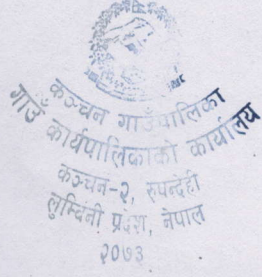 कञ्चन गाउँपालिका
गाउँ कार्यपालिकाको कार्यालय
कञ्चन-२, रुपन्देही
लुम्बिनी प्रदेश, नेपाल
२०७३